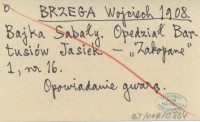 BRZEGA Wojciech 1908.
Bajka Sabały. Opedział Bar-
tusiów Jasiek. – „Zakopane”
1, nr 16.
Opowiadanie gwarą.